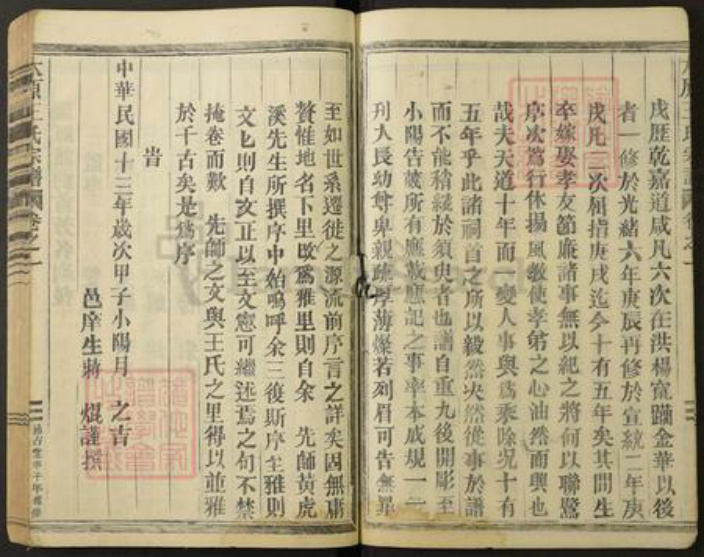 戌歷乾嘉道咸凡六次在洪楊寬躪金華以後
者一修於光緒六年庚辰再修於宣統二年庚
戌凡二次屈指庚戌迄今十有五年矣其間生
卒嫁娶孝友節廉諸事無以紀之將何以聯鷺
序次鴛行休揚風教使孝弟之心油然而興也
哉夫天道十年而一變人事與爲乘除況十有
五年乎此諸祠首之所以毅然决然從事於譜
而不能稍緩於須臾者也譜自重九後開彫至
小陽告蕆所有應載應記之事率本成規一一
刋人長幼尊卑親疏厚薄燦若列眉可告無罪
至如世系遷徙之源流前序言之詳矣固無庸
贅惟地名下里改爲雅里則自余 先師黃虎
溪先生所撰序中始嗚呼余三復斯序至雅則
文匕則自文正以至文憲可繼述焉之句不禁
掩卷而歎 先師之文與王氏之里得以並雅
於千古矣是爲序
旹
中華民國十三年歲次甲子小陽月 之吉
邑庠生蔣 焜謹撰
太原王氏宗譜 卷之一